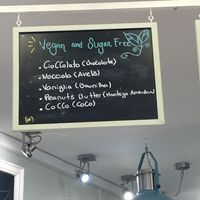 Vegan and Sugar Free
• CioCColato (chocolate)
• Nocciola (Avelã)
• Vaniglia (Baunilha)
• Peanuts Butter (Manteiga Amendoim)
• CoCCo (CoCo)